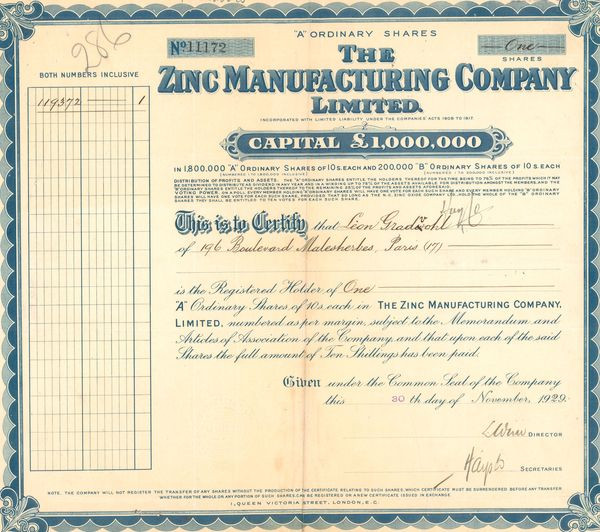 "A" ORDINARY SHARES
286
No 11172
One
SHARES
THE
ZINC MANUFACTURING COMPANY
LIMITED.
BOTH NUMBERS INCLUSIVE
INCORPORATED WITH LIMITED LIABILITY UNDER THE COMPANIES' ACTS 1908 TO 1917
CAPITAL £1,000,000
119372 1
IN 1,800,000 "A" ORDINARY SHARES OF 10S. EACH AND 200,000 "B" ORDINARY SHARES OF 10S. EACH
(NUMBERED 1 TO 1,800,000 INCLUSIVE) (NUMBERED 1 TO 200,000 INCLUSIVE)
DISTRIBUTION OF PROFITS AND ASSETS. THE "A" ORDINARY SHARES ENTITLE THE HOLDERS THEREOF FOR THE TIME BEING TO 75% OF THE PROFITS WHICH IT MAY
BE DETERMINED TO DISTRIBUTE AS DIVIDEND IN ANY YEAR AND IN A WINDING UP TO 75% OF THE ASSETS AVAILABLE FOR DISTRIBUTION AMONGST THE MEMBERS, AND THE
"B" ORDINARY SHARES ENTITLE THE HOLDERS THEREOF TO THE REMAINING 25% OF THE PROFITS AND ASSETS AFORESAID.
VOTING POWER. ON A POLL EVERY MEMBER HOLDING "A" ORDINARY SHARES WILL HAVE ONE VOTE FOR EACH SUCH SHARE AND EVERY MEMBER HOLDING "B" ORDINARY
SHARES WILL HAVE ONE VOTE FOR EACH SUCH SHARE, PROVIDED THAT SO LONG AS THE N.C. ZINC OXIDE COMPANY LIMITED HOLD THE WHOLE OF THE "B" ORDINARY
SHARES THEY SHALL BE ENTITLED TO TEN VOTES FOR EACH SUCH SHARE.
This is to Certify that Léon Gradwohl
of 196 Boulevard Malesherbes, Paris (17)
is the Registered Holder of One
"A" Ordinary Shares of 10s. each in THE ZINC MANUFACTURING COMPANY,
LIMITED, numbered as per margin, subject to the Memorandum and
Articles of Association of the Company and that upon each of the said
Shares the full amount of Ten Shillings has been paid.
Given under the Common Seal of the Company
this 30th day of November, 1929.
DIRECTOR
SECRETARIES
NOTE. THE COMPANY WILL NOT REGISTER THE TRANSFER OF ANY SHARES WITHOUT THE PRODUCTION OF THE CERTIFICATE RELATING TO SUCH SHARES, WHICH CERTIFICATE MUST BE SURRENDERED BEFORE ANY TRANSFER
WHETHER FOR THE WHOLE OR ANY PORTION OF SUCH SHARES, CAN BE REGISTERED OR A NEW CERTIFICATE ISSUED IN EXCHANGE
1, QUEEN VICTORIA STREET, LONDON, E.C.